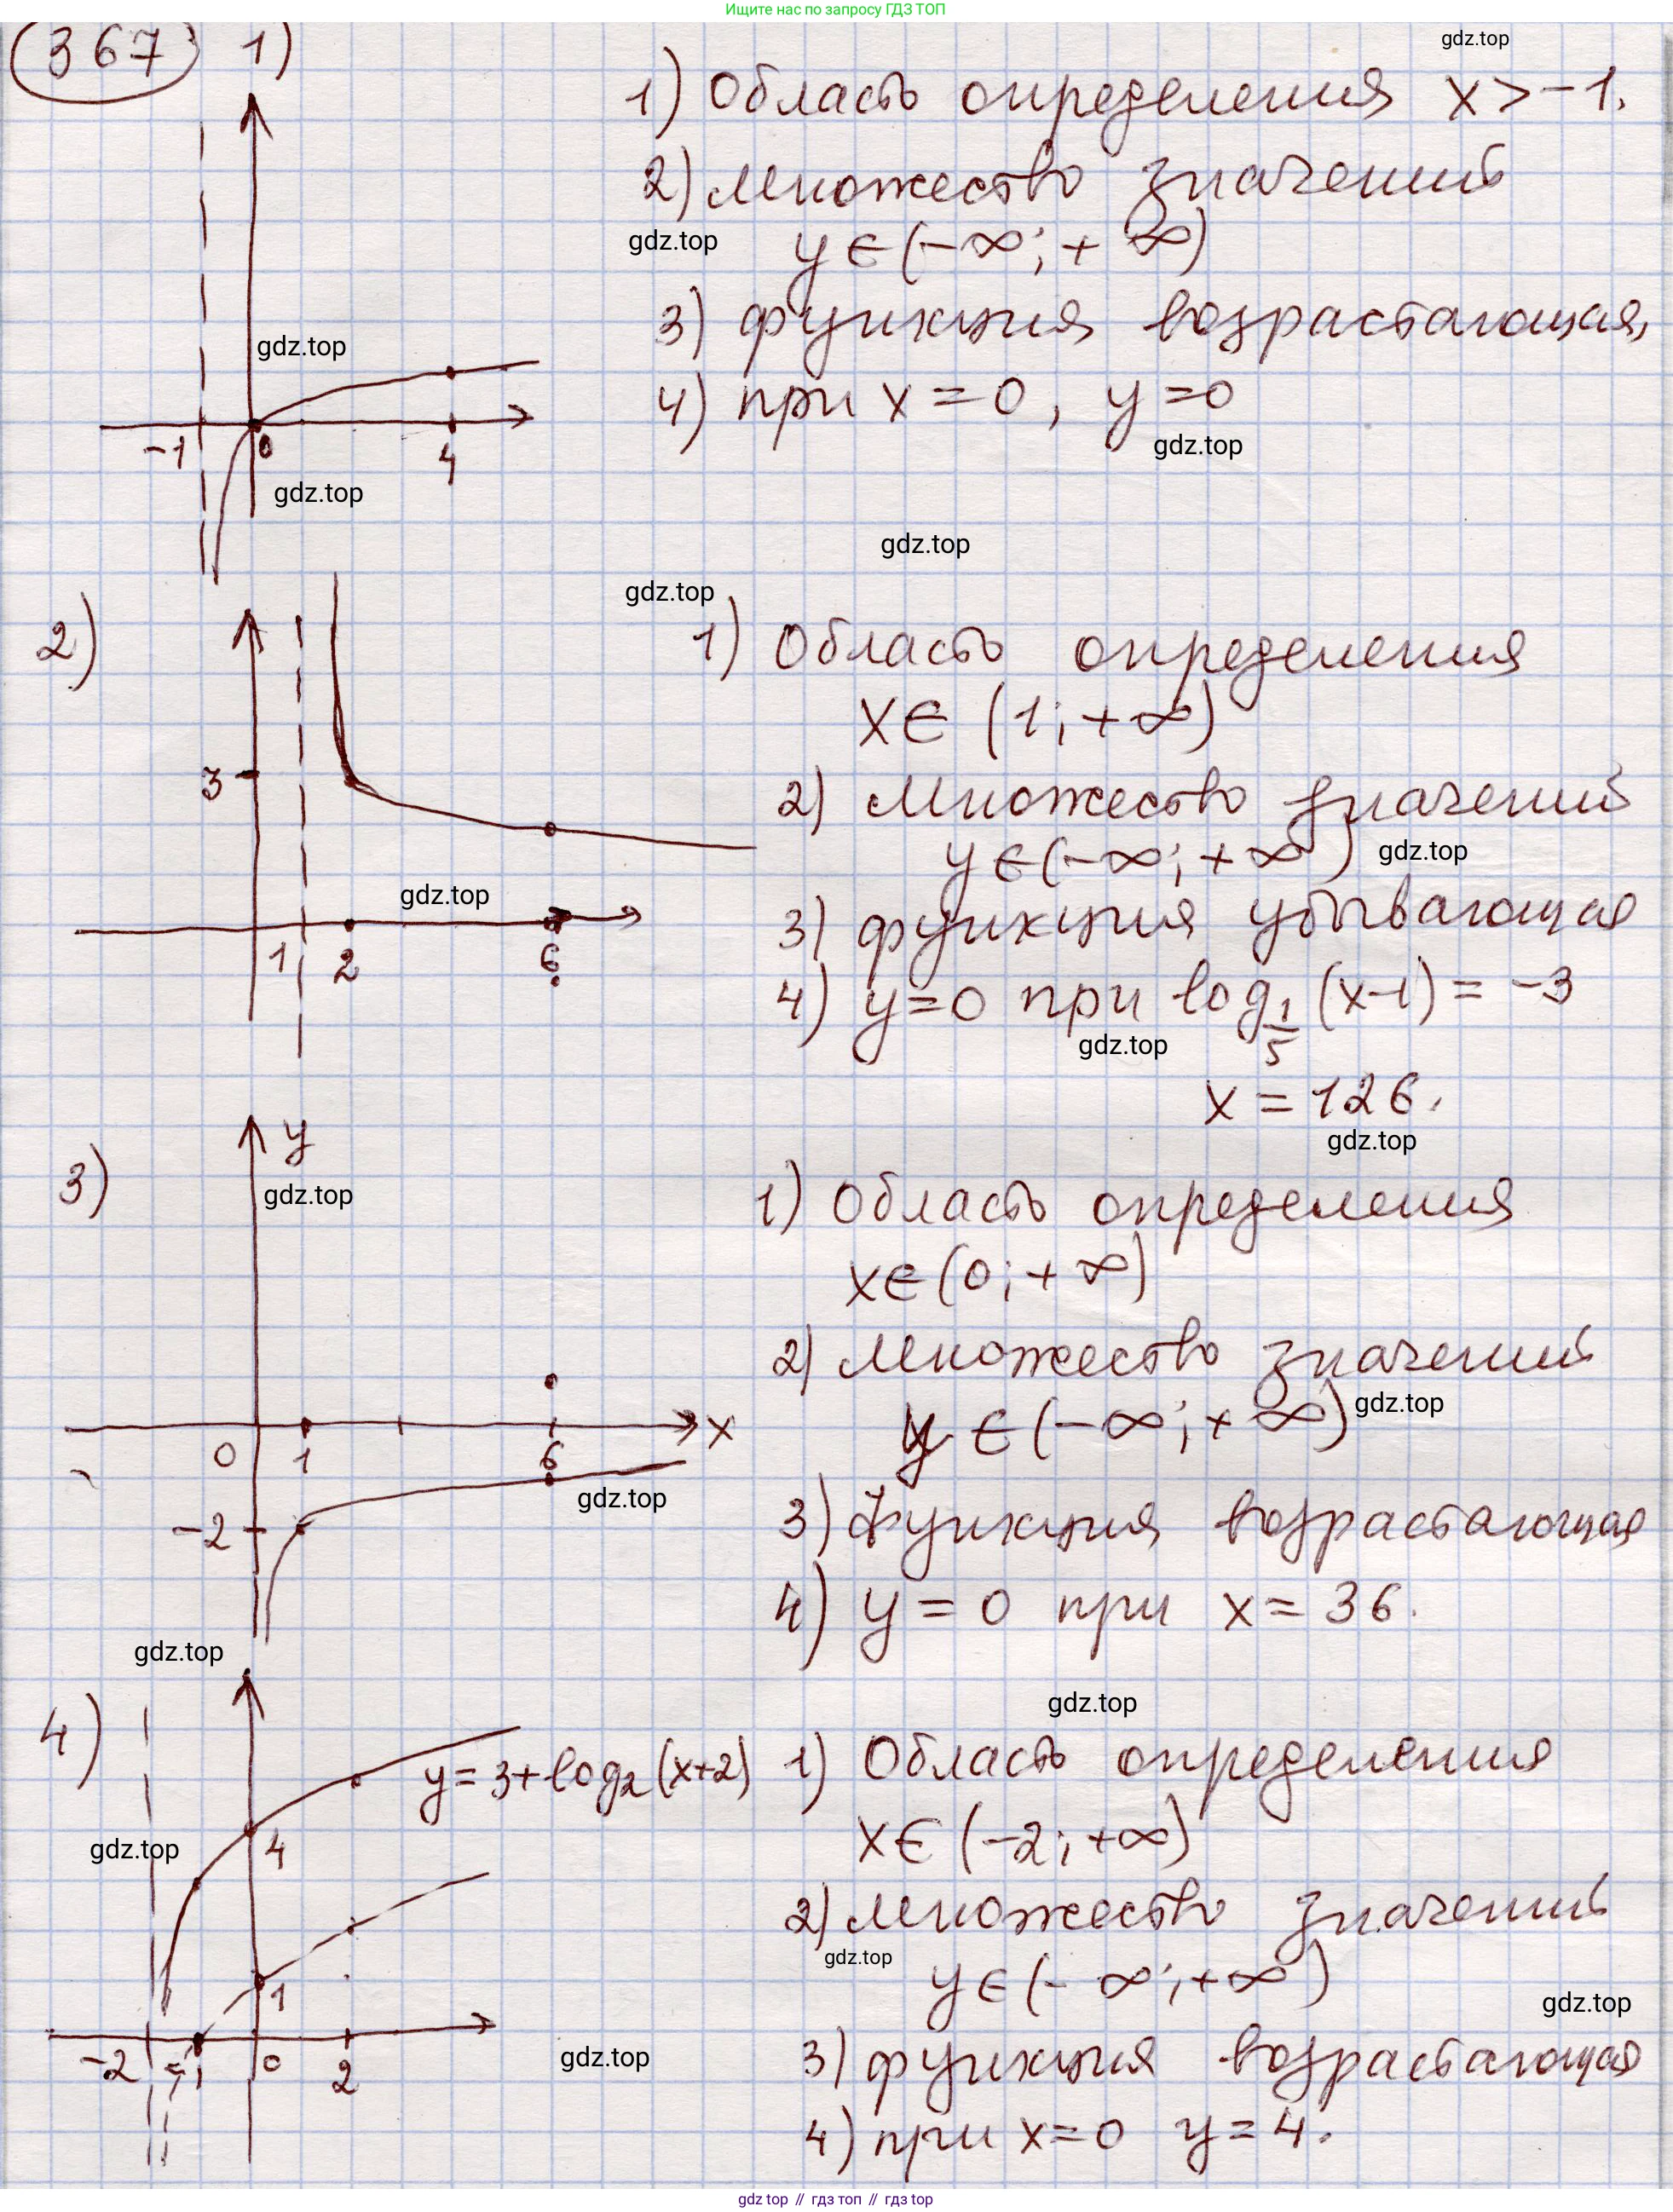 Ищите нас по запросу ГДЗ ТОП
367 1)
gdz.top
1) Область определения x > -1.
2) множество значений
gdz.top
y ∈ (-∞; +∞)
3) функция возрастающая,
gdz.top
4) при x = 0, y = 0
gdz.top
-1 0 4
gdz.top
gdz.top
gdz.top
2)
1) Область определения
x ∈ (1; +∞)
3
2) Множество значений
y ∈ (-∞; +∞)
gdz.top
gdz.top
3) функция убывающая
1 2 6
4) y = 0 при log_{1/5} (x-1) = -3
gdz.top
x = 126.
gdz.top
3)
y
gdz.top
1) Область определения
x ∈ (0; +∞)
2) Множество значений
gdz.top
y ∈ (-∞; +∞)
x
0 1 6
gdz.top
-2
3) Функция возрастающая
4) y = 0 при x = 36.
gdz.top
gdz.top
4)
y = 3 + log₂ (x+2)
1) Область определения
gdz.top
4
x ∈ (-2; +∞)
2) множество значений
gdz.top
1
y ∈ (-∞; +∞)
gdz.top
-2 -1 0 2
gdz.top
3) функция возрастающая
4) при x = 0 y = 4.
gdz top // гдз топ // gdz top